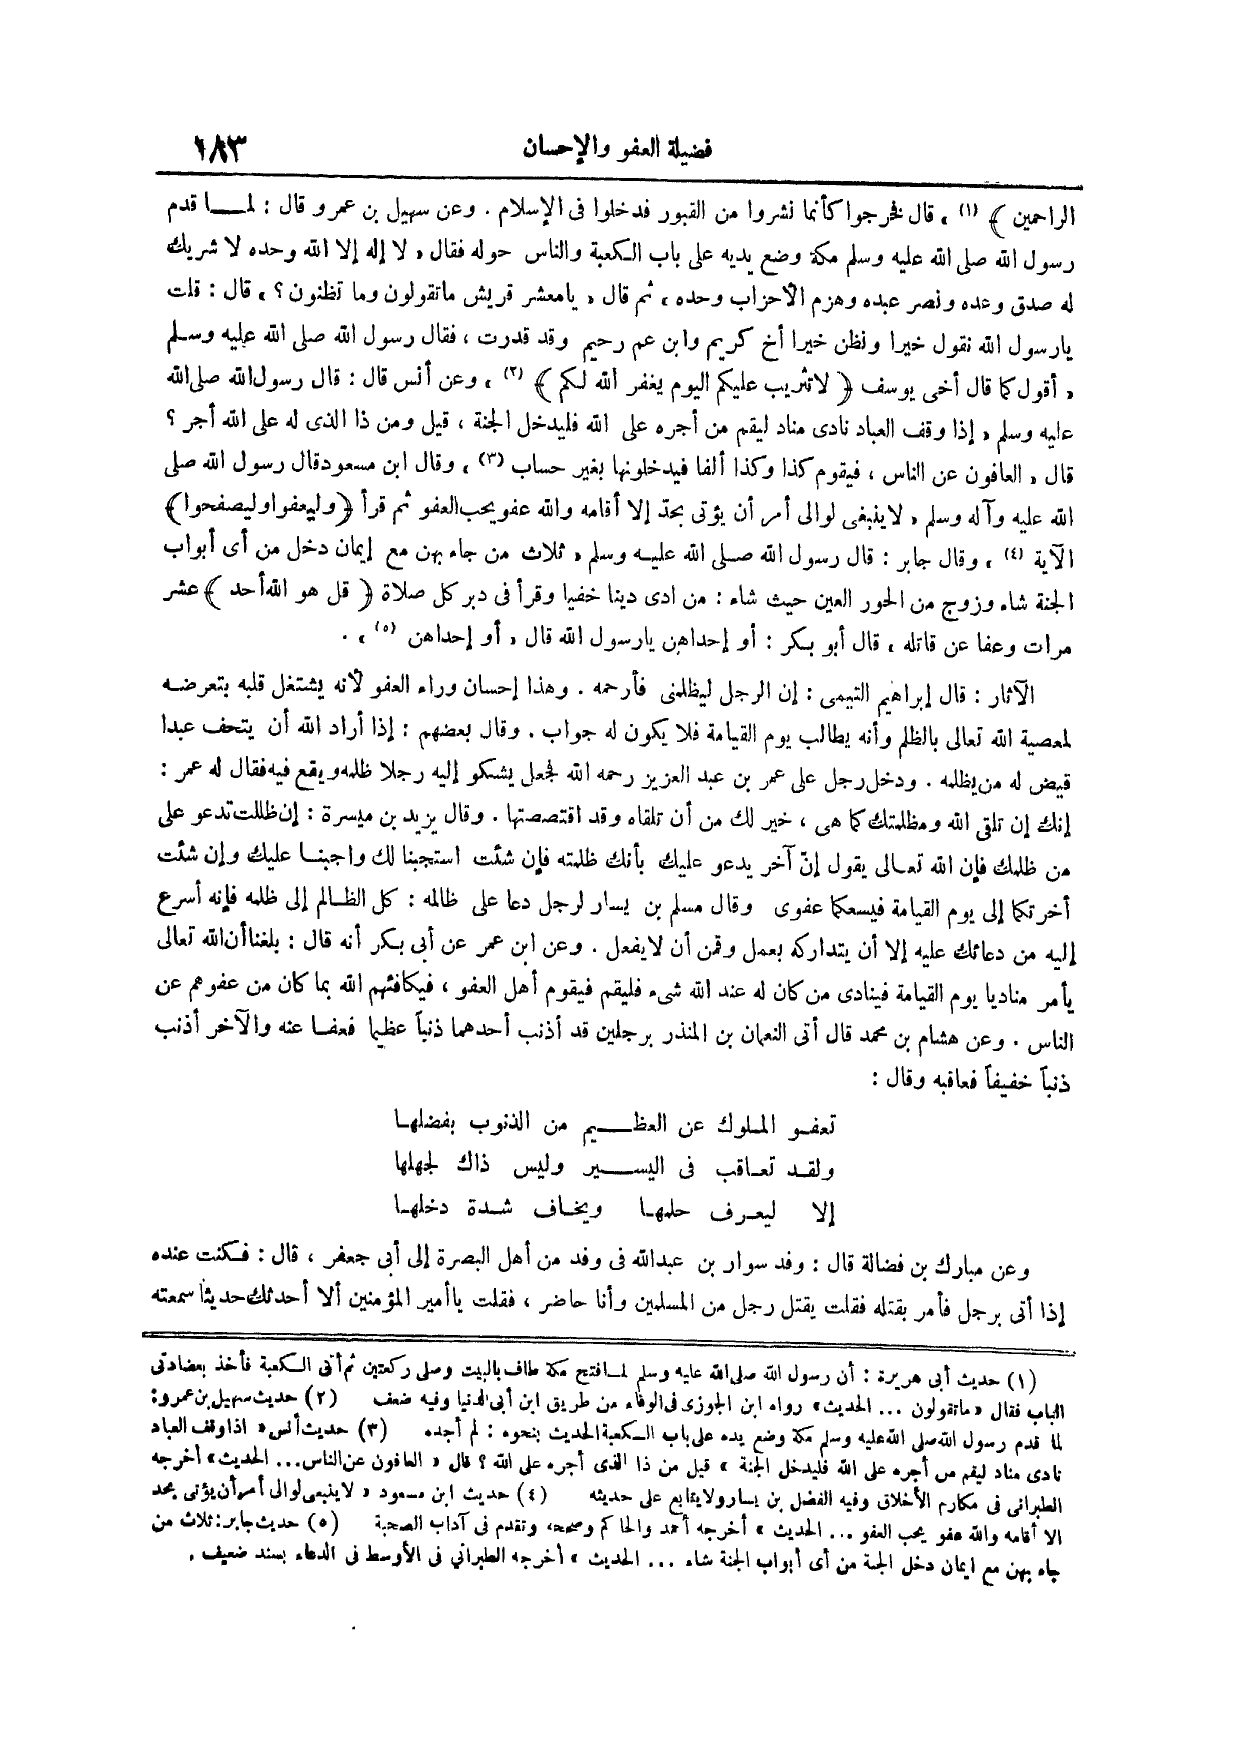 فضيلة العفو والإحسان ١٨٣
الراحمين ﴾ (١) ، قال فخرجوا كأنما نشروا من القبور فدخلوا فى الإسلام . وعن سهيل بن عمرو قال : لمـــا قدم
رسول الله صلى الله عليه وسلم مكة وضع يديه على باب الكعبة والناس حوله فقال « لا إله إلا الله وحده لا شريك
له صدق وعده ونصر عبده وهزم الأحزاب وحده » ثم قال « يامعشر قريش ماتقولون وما تظنون ؟ » قال : قلت
يارسول الله نقول خيرا ونظن خيرا أخ كريم وابن عم رحيم وقد قدرت ، فقال رسول الله صلى الله عليه وسلم
« أقول كما قال أخى يوسف ﴿ لاتثريب عليكم اليوم يغفر الله لكم ﴾ (٢) » وعن أنس قال : قال رسول الله صلى الله
عليه وسلم « إذا وقف العباد نادى مناد ليقم من أجره على الله فليدخل الجنة ، قيل ومن ذا الذى له على الله أجر ؟
قال « العافون عن الناس ، فيقوم كذا وكذا ألفا فيدخلونها بغير حساب (٣) » وقال ابن مسعود قال رسول الله صلى
الله عليه وآله وسلم « لاينبغى لوالى أمر أن يؤتى بحدّ إلا أقامه والله عفو يحب العفو ثم قرأ ﴿ وليعفوا وليصفحوا ﴾
الآية (٤) » وقال جابر : قال رسول الله صلى الله عليـه وسلم « ثلاث من جاء بهن مع إيمان دخل من أى أبواب
الجنة شاء وزوج من الحور العين حيث شاء : من ادى دينا خفيا وقرأ فى دبر كل صلاة ﴿ قل هو الله أحد ﴾ عشر
مرات وعفا عن قاتله » قال أبو بكر : أو إحداهن يارسول الله قال « أو إحداهن (٥) » .
الآثار : قال إبراهيم التيمى : إن الرجل ليظلمنى فأرحمه . وهذا إحسان وراء العفو لأنه يشتغل قلبه بتعرضـه
لمعصية الله تعالى بالظلم وأنه يطالب يوم القيامة فلا يكون له جواب . وقال بعضهم : إذا أراد الله أن يتحف عبدا
قيض له من يظلمه . ودخل رجل على عمر بن عبد العزيز رحمه الله فجعل يشكو إليه رجلا ظلمه ويقع فيه فقال له عمر :
إنك إن تلقى الله ومظلمتك كما هى ، خير لك من أن تلقاه وقد اقتصصتها . وقال يزيد بن ميسرة : إن ظللت تدعو على
من ظلمك فإن الله تعـالى يقول إنّ آخر يدعو عليك بأنك ظلمته فإن شئت استجبنا لك واجبنـا عليك وإن شئت
أخرتكما إلى يوم القيامة فيسعكما عفوى وقال مسلم بن يسار لرجل دعا على ظالمه : كل الظـالم إلى ظلمه فإنه أسرع
إليه من دعائك عليه إلا أن يتداركه بعمل وقمن أن لايفعل . وعن ابن عمر عن أبى بكر أنه قال : بلغنا أن الله تعالى
يأمر مناديا يوم القيامة فينادى من كان له عند الله شىء فليقم فيقوم أهل العفو ، فيكافئهم الله بما كان من عفوهم عن
الناس . وعن هشام بن محمد قال أتى النعمان بن المنذر برجلين قد أذنب أحدهما ذنباً عظيما فعفـا عنه والآخر أذنب
ذنباً خفيفاً فعاقبه وقال :
تعفـو الملوك عن العظـــيم من الذنوب بفضلهـا
ولقـد تعـاقب فى اليســـير وليس ذاك لجهلها
إلا ليعـرف حلمهـا ويخـاف شـدة دخلهـا
وعن مبارك بن فضالة قال : وفد سوار بن عبدالله فى وفد من أهل البصرة إلى أبى جعفر ، قال : فـكنت عنده
إذا أتى برجل فأمر بقتله فقلت يقتل رجل من المسلمين وأنا حاضر ، فقلت ياأمير المؤمنين ألا أحدثك حديثا سمعته
(١) حديث أبى هريرة : أن رسول الله صلى الله عليه وسلم لمـا فتح مكة طاف بالبيت وصلى ركعتين ثم أتى الـكعبة فأخذ بعضادتى
الباب فقال « ماتقولون ... الحديث » رواه ابن الجوزى فى الوفاء من طريق ابن أبى الدنيا وفيه ضعف (٢) حديث سهيل بن عمرو :
لما قدم رسول الله صلى الله عليه وسلم مكة وضع يده على باب الـكعبة الحديث بنحوه : لم أجده (٣) حديث أنس « اذا وقف العباد
نادى مناد ليقم من أجره على الله فليدخل الجنة » قيل من ذا الذى أجره على الله ؟ قال « العافون عن الناس ... الحديث » أخرجه
الطبرانى فى مكارم الأخلاق وفيه الفضل بن يسار ولايتابع على حديثه (٤) حديث ابن مسعود « لاينبغى لوالى أمر أن يؤتى بحد
الا أقامه والله عفو يحب العفو ... الحديث » أخرجه أحمد والحاكم وصححه وتقدم فى آداب الصحبة (٥) حديث جابر : ثلاث من
جاء بهن مع ايمان دخل الجنة من أى أبواب الجنة شاء ... الحديث » أخرجه الطبرانى فى الأوسط فى الدعاء بسند ضعيف .